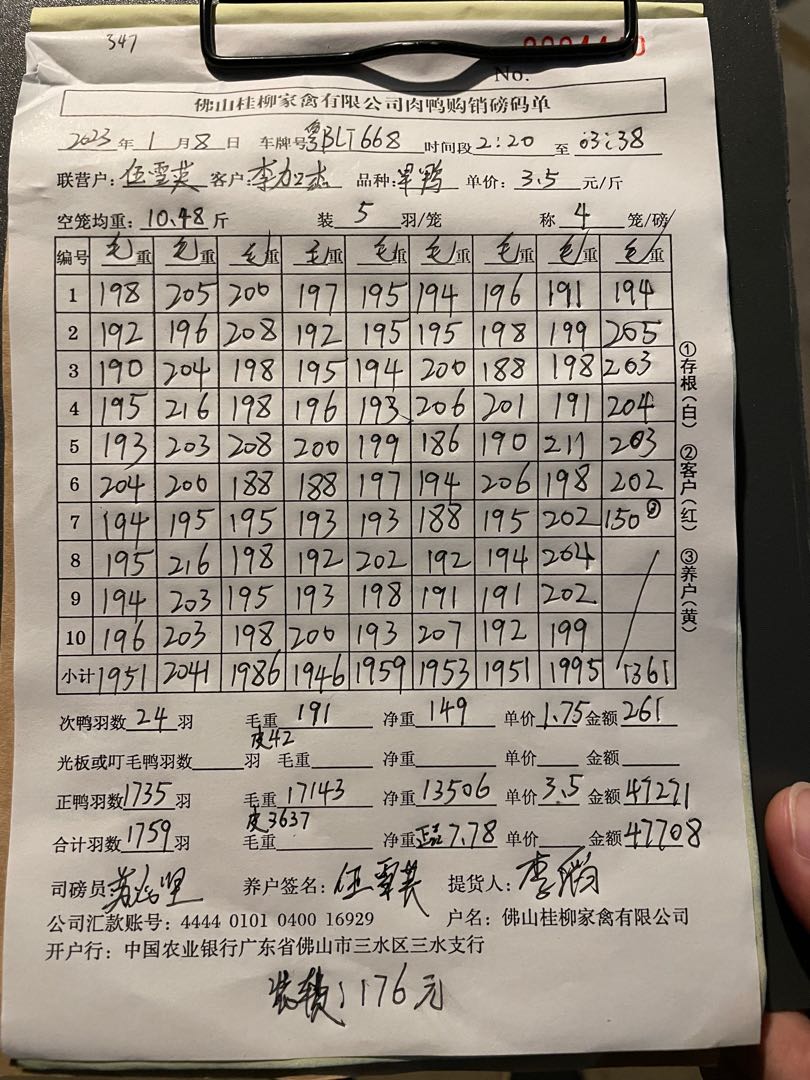 347
No.
佛山桂柳家禽有限公司肉鸭购销磅码单
2023 年 1 月 8 日 车牌号 粤BLT668 时间段 2:20 至 03:38
联营户: 伍雪英 客户: 李加 品种: 旱鸭 单价: 3.5 元/斤
空笼均重: 10.48 斤 装 5 羽/笼 称 4 笼/磅
编号 毛重 毛重 毛重 毛重 毛重 毛重 毛重 毛重 毛重
1 198 205 200 197 195 194 196 191 194
2 192 196 208 192 195 195 198 199 205
3 190 204 198 195 194 200 188 198 203
4 195 216 198 196 193 206 201 191 204
5 193 203 208 200 199 186 190 211 203
6 204 200 188 188 197 194 206 198 202
7 194 195 195 193 193 188 195 202 150
8 195 216 198 192 202 192 194 204
9 194 203 195 193 198 191 191 202
10 196 203 198 200 193 207 192 199
小计 1951 2041 1986 1946 1959 1953 1951 1995 1361
①存根(白) ②客户(红) ③养户(黄)
次鸭羽数 24 羽 毛重 191 净重 149 单价 1.75 金额 261
皮42
光板或叮毛鸭羽数 羽 毛重 净重 单价 金额
正鸭羽数 1735 羽 毛重 17143 净重 13506 单价 3.5 金额 47271
皮3637
合计羽数 1759 羽 毛重 净重 7.78 单价 金额 47708
司磅员 养户签名: 伍雪英 提货人: 李
公司汇款账号: 4444 0101 0400 16929 户名: 佛山桂柳家禽有限公司
开户行: 中国农业银行广东省佛山市三水区三水支行
装车费: 176元